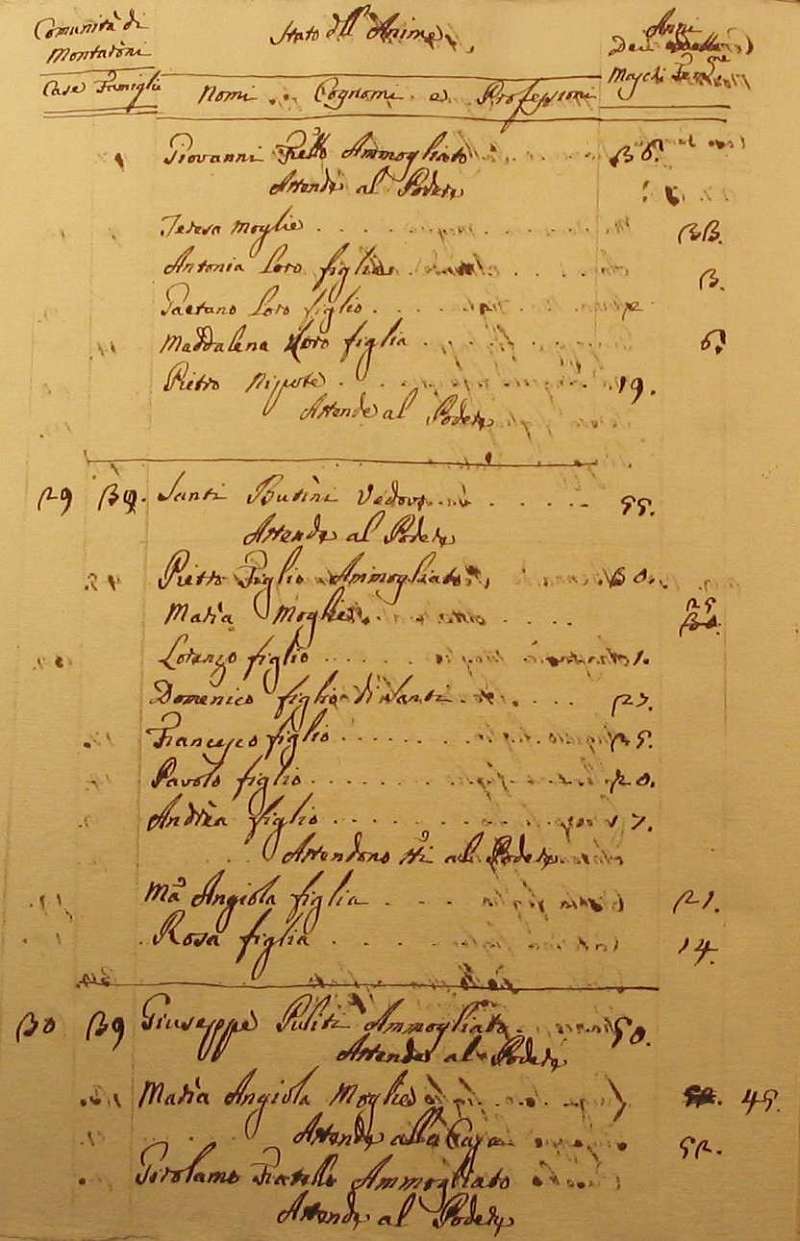 Comunità di Stato dll' Anime Anni
Montatoni Dei
Case Famiglie Nomi . Cognomi . e Professioni Maschi Fem
Giovanni Fratto Ammogliato 36.
Attende al Podere
Teresa moglie . . . . 33.
Antonia loro figlia . . . . 3.
Gaetano loro figlio . . . .
Maddalena loro figlia . . . . 6.
Pietro Nipote . . . . 19.
Attende al Podere
29 39. Santi Butini Vedovo . . . . 55.
Attende al Podere
Pietro Figlio Ammogliato 30.
Maria Moglie . . . . 25
Lorenzo figlio . . . . 1.
Domenico figlio di Santi . . . . 27.
Francesco figlio . . . . 25.
Pavolo figlio . . . . 20.
Andrea figlio . . . . 17.
Attendono tti al Podere
Ma Angiola figlia . . . . 21.
Rosa figlia . . . . 14.
30 39 Giuseppe Puliti Ammogliato 50.
Attende al Podere
Maria Angiola Moglie 45.
Attende alla Casa
52.
Girolamo Fratello Ammogliato
Attende al Podere